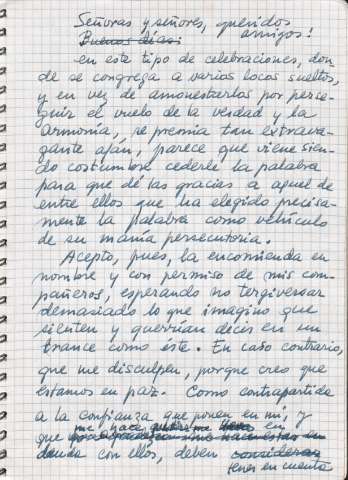 Señoras y señores, queridos
Buenos días: amigos!
en este tipo de celebraciones, don-
de se congrega a varios locos sueltos,
y en vez de amonestarlos por perse-
guir el vuelo de la verdad y la
armonía, se premia tan extrava-
gante afán, parece que viene sien-
do costumbre cederle la palabra
para que dé las gracias a aquel de
entre ellos que ha elegido precisa-
mente la palabra como vehículo
de su manía persecutoria.
Acepto, pues, la encomienda en
nombre y con permiso de mis com-
pañeros, esperando no tergiversar
demasiado lo que imagino que
sienten y querrían decir en un
trance como éste. En caso contrario,
que me disculpen, porque creo que
estamos en paz. Como contrapartida
a la confianza que ponen en mí, y
me hace en
que
deuda con ellos, deben considerar
tener en cuenta